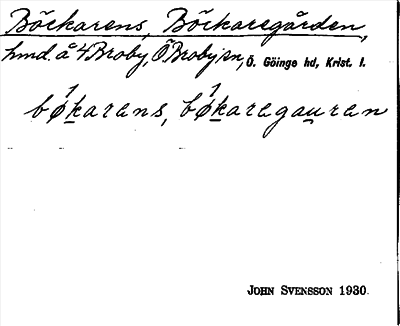 Böckarens, Böckaregården,
hmd. å 4 Broby, Ö Broby sn, Ö. Göinge hd, Krist. l.
bǿkarens, bǿkaregauren
JOHN SVENSSON 1930.